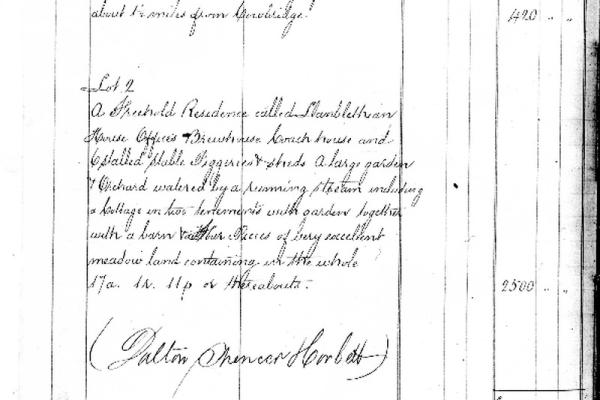 about 1½ miles from Cowbridge. 420 " "
Lot 2
A Freehold Residence called Llanblethian
House Offices Brewhouse Coach house and
6 stalled stable Piggeries & sheds A large garden
& Orchard watered by a running stream including
a Cottage in two tenements with garden together
with a barn & other Pieces of very excellent
meadow land containing in the whole
17a. 1r. 11p or thereabouts - 2500 " "
(Dalton Spencer Corbett)